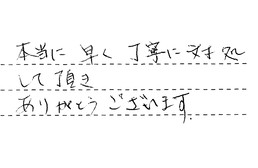 本当に 早く 丁寧に 対処
して 頂き
ありがとうございます